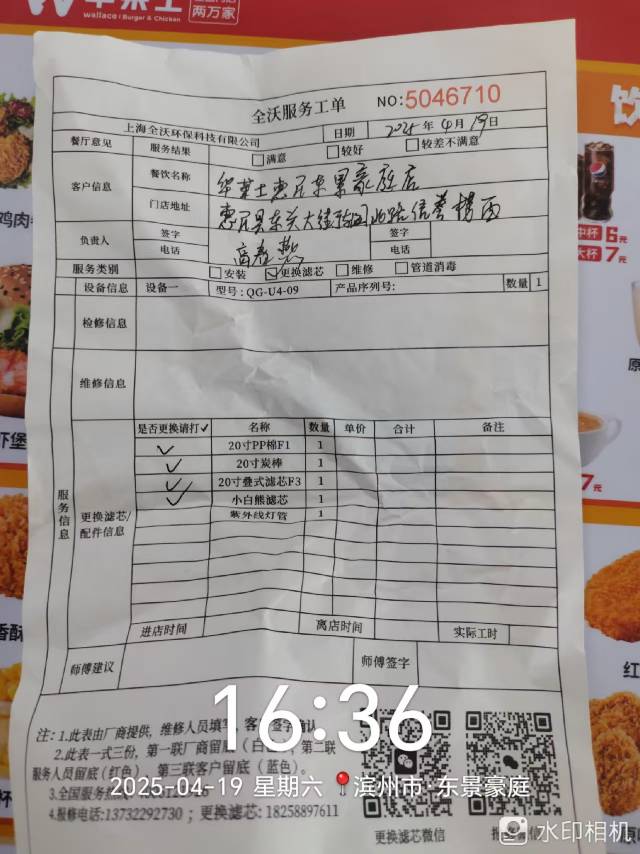 wallace | Burger & Chicken
两万家
全沃服务工单 NO:5046710
上海全沃环保科技有限公司 日期 2025年4月19日
餐厅意见 服务结果 满意 较好 较差不满意
客户信息 餐饮名称 华莱士惠民东景豪庭店
门店地址 惠民县东关大街
负责人 签字 签字
电话 电话
服务类别 安装 更换滤芯 维修 管道消毒
设备信息 设备一 型号:QG-U4-09 产品序列号: 数量 1
检修信息
维修信息
服务信息
更换滤芯/配件信息
是否更换请打✓ 名称 数量 单价 合计 备注
✓ 20寸PP棉F1 1
✓ 20寸炭棒 1
✓ 20寸叠式滤芯F3 1
✓ 小白熊滤芯 1
紫外线灯管 1
进店时间 离店时间 实际工时
师傅建议 师傅签字
16:36
注:1.此表由厂商提供，维修人员填写 客 签字确认
2.此表一式三份，第一联厂商留底（白 ），第二联
服务人员留底（红色） 第三联客户留底（蓝色）。
2025-04-19 星期六 滨州市·东景豪庭
3.全国服务热
4.报修电话:13732292730；更换滤芯:18258897611
更换滤芯微信
水印相机
中杯 6元
大杯 7元
7元